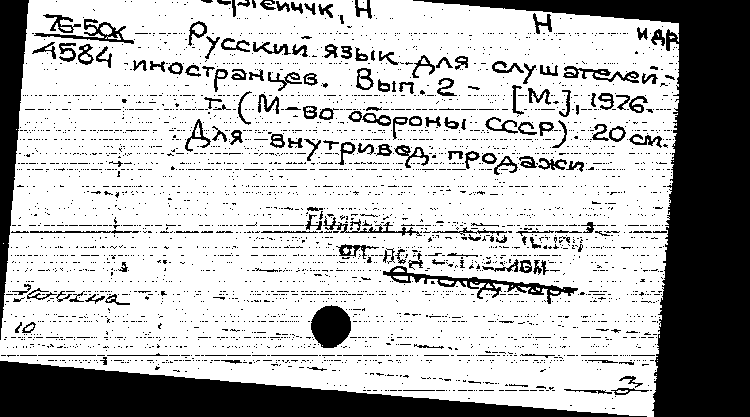 Н Н и др
76-50к
4584
Русский язык для слушателей-
иностранцев. Вып. 2 - [М.], 1976.
т. (М-во обороны СССР). 20 см.
Для внутривед. продажи.
Полный
оп. под заглавием
См. след. карт.
10
3